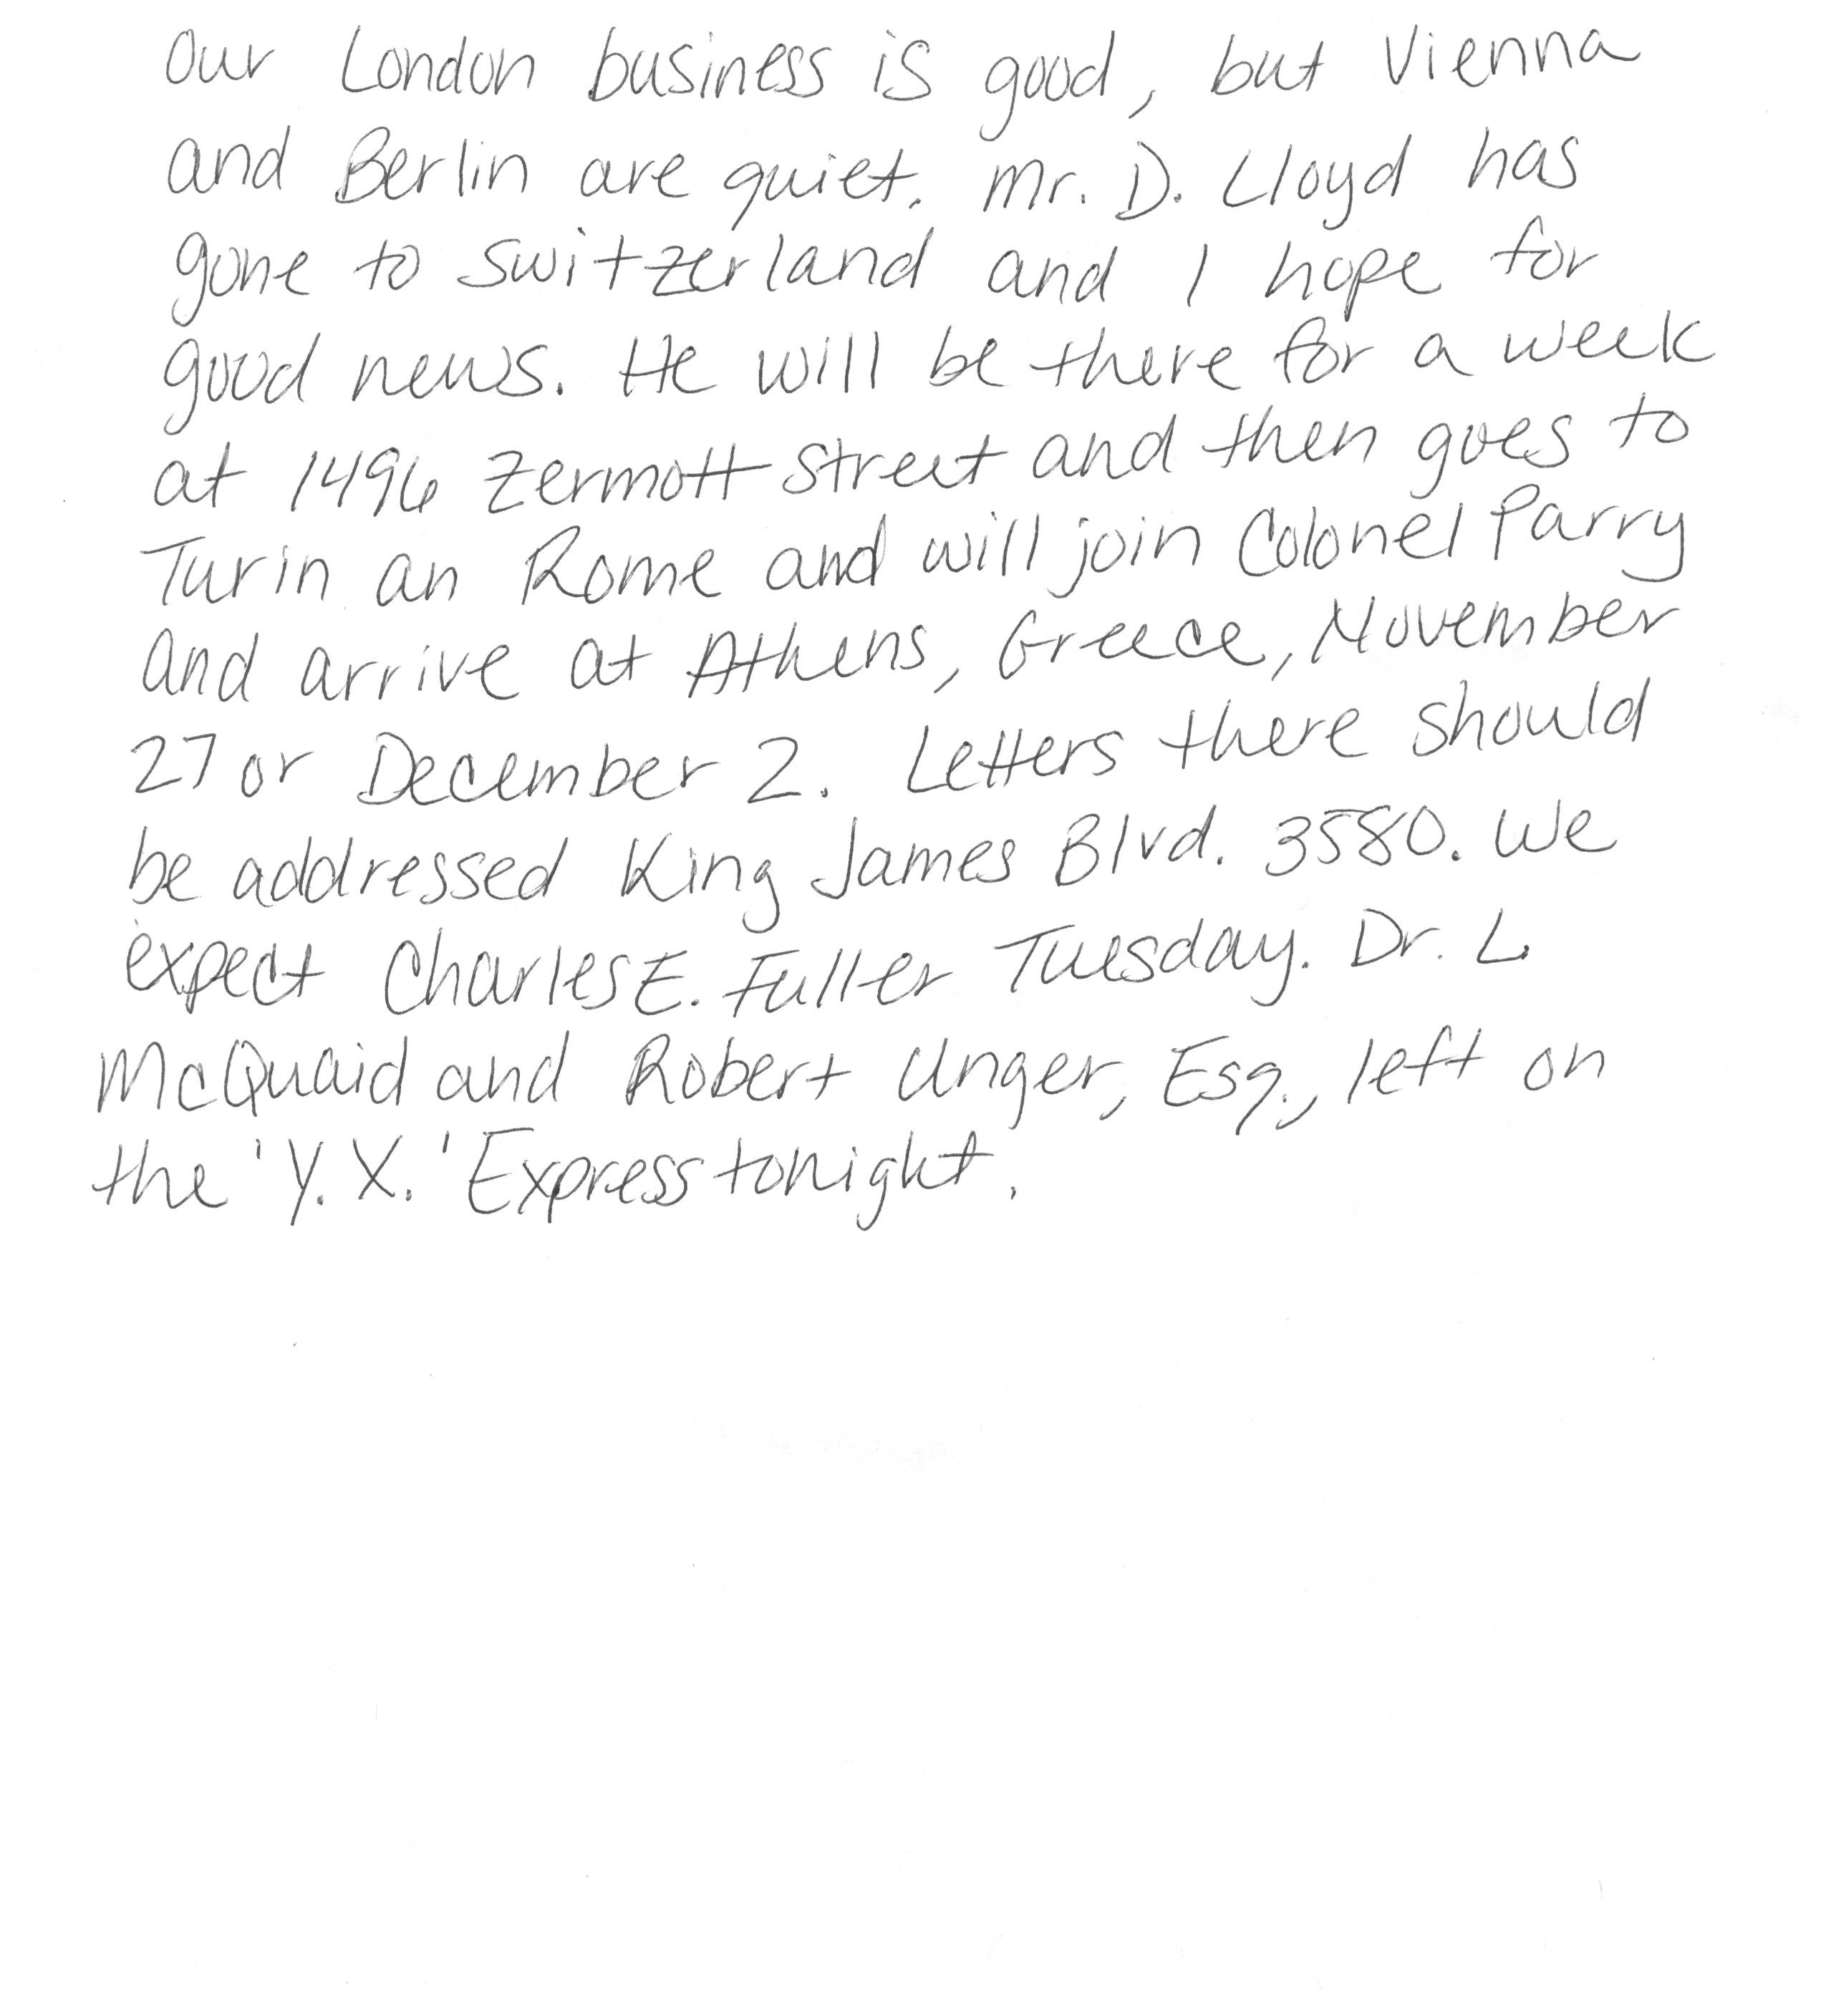 Our London business is good, but Vienna
and Berlin are quiet. Mr. D. Lloyd has
gone to Switzerland and I hope for
good news. He will be there for a week
at 1496 Zermott Street and then goes to
Turin an Rome and will join Colonel Parry
and arrive at Athens, Greece, November
27 or December 2. Letters there should
be addressed King James Blvd. 3580. We
expect Charles E. Fuller Tuesday. Dr. L.
McQuaid and Robert Unger, Esq., left on
the 'Y.X.' Express tonight.